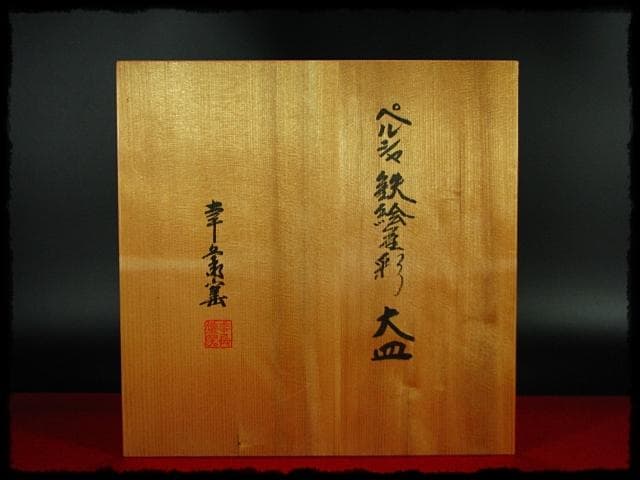 ペルシャ鉄絵 彩 大皿
幸兵衛窯